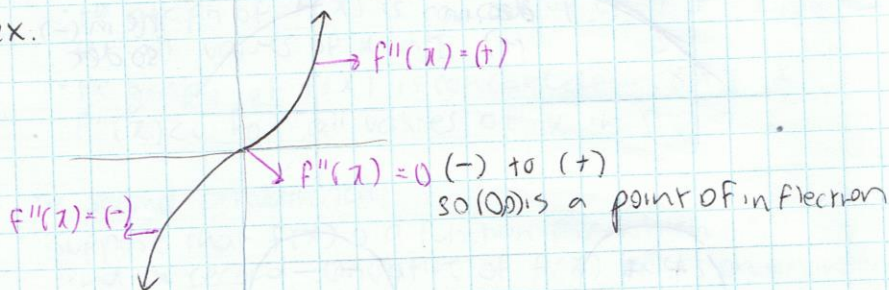 ex.
f''(x) = (+)
f''(x) = 0 (-) to (+)
so (0,0) is a point of inflection
f''(x) = (-)